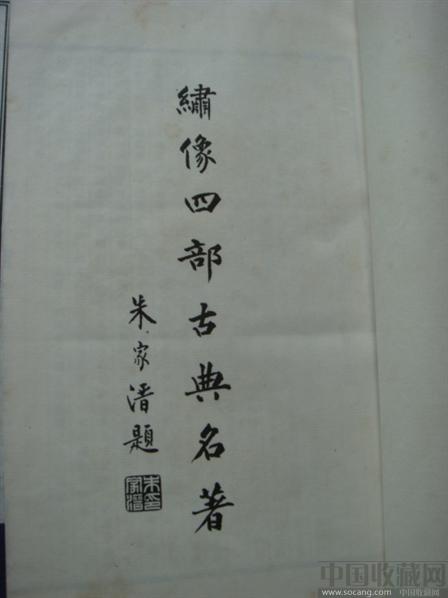 繡像四部古典名著
朱家溍題
朱家溍印
中国收藏网
www.socang.com 中国收藏网